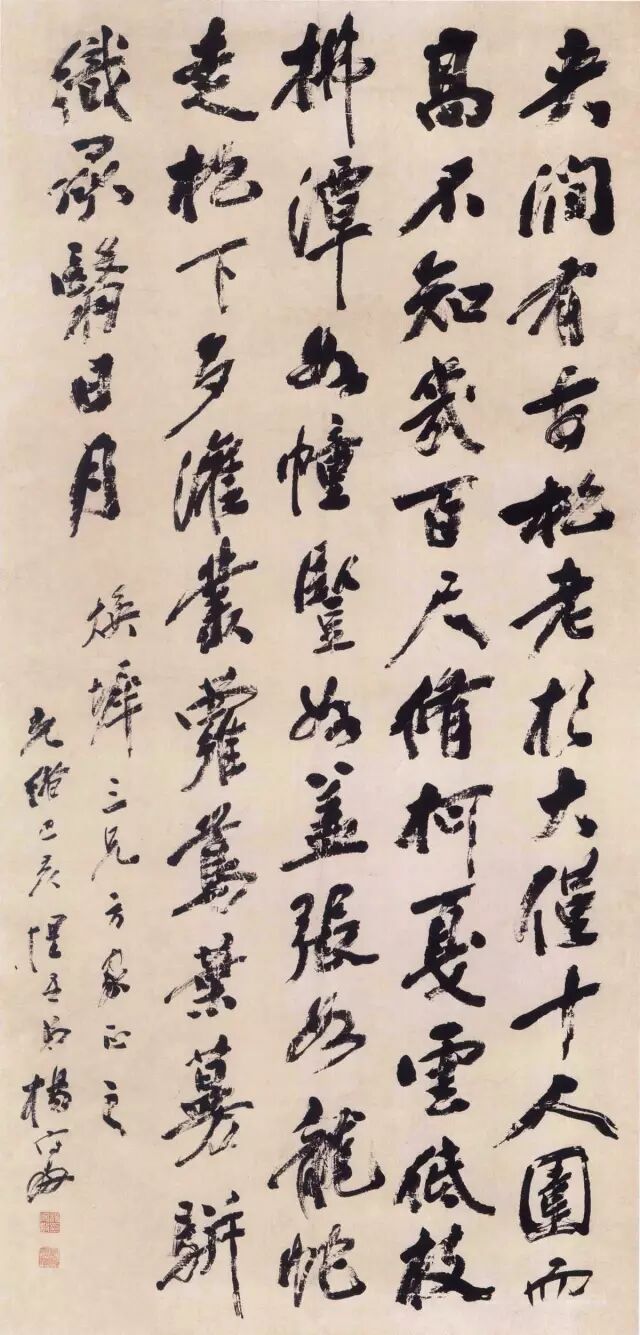 夾澗有古松老杉大僅十人圍而
高不知幾百尺脩柯戛雲低枝
拂潭如幢豎如蓋張如龍虵
走松下多灌叢蘿蔦葉蔓駢
織承翳日月
煥墀三兄方家正之
光緒己亥惺吾弟楊守敬